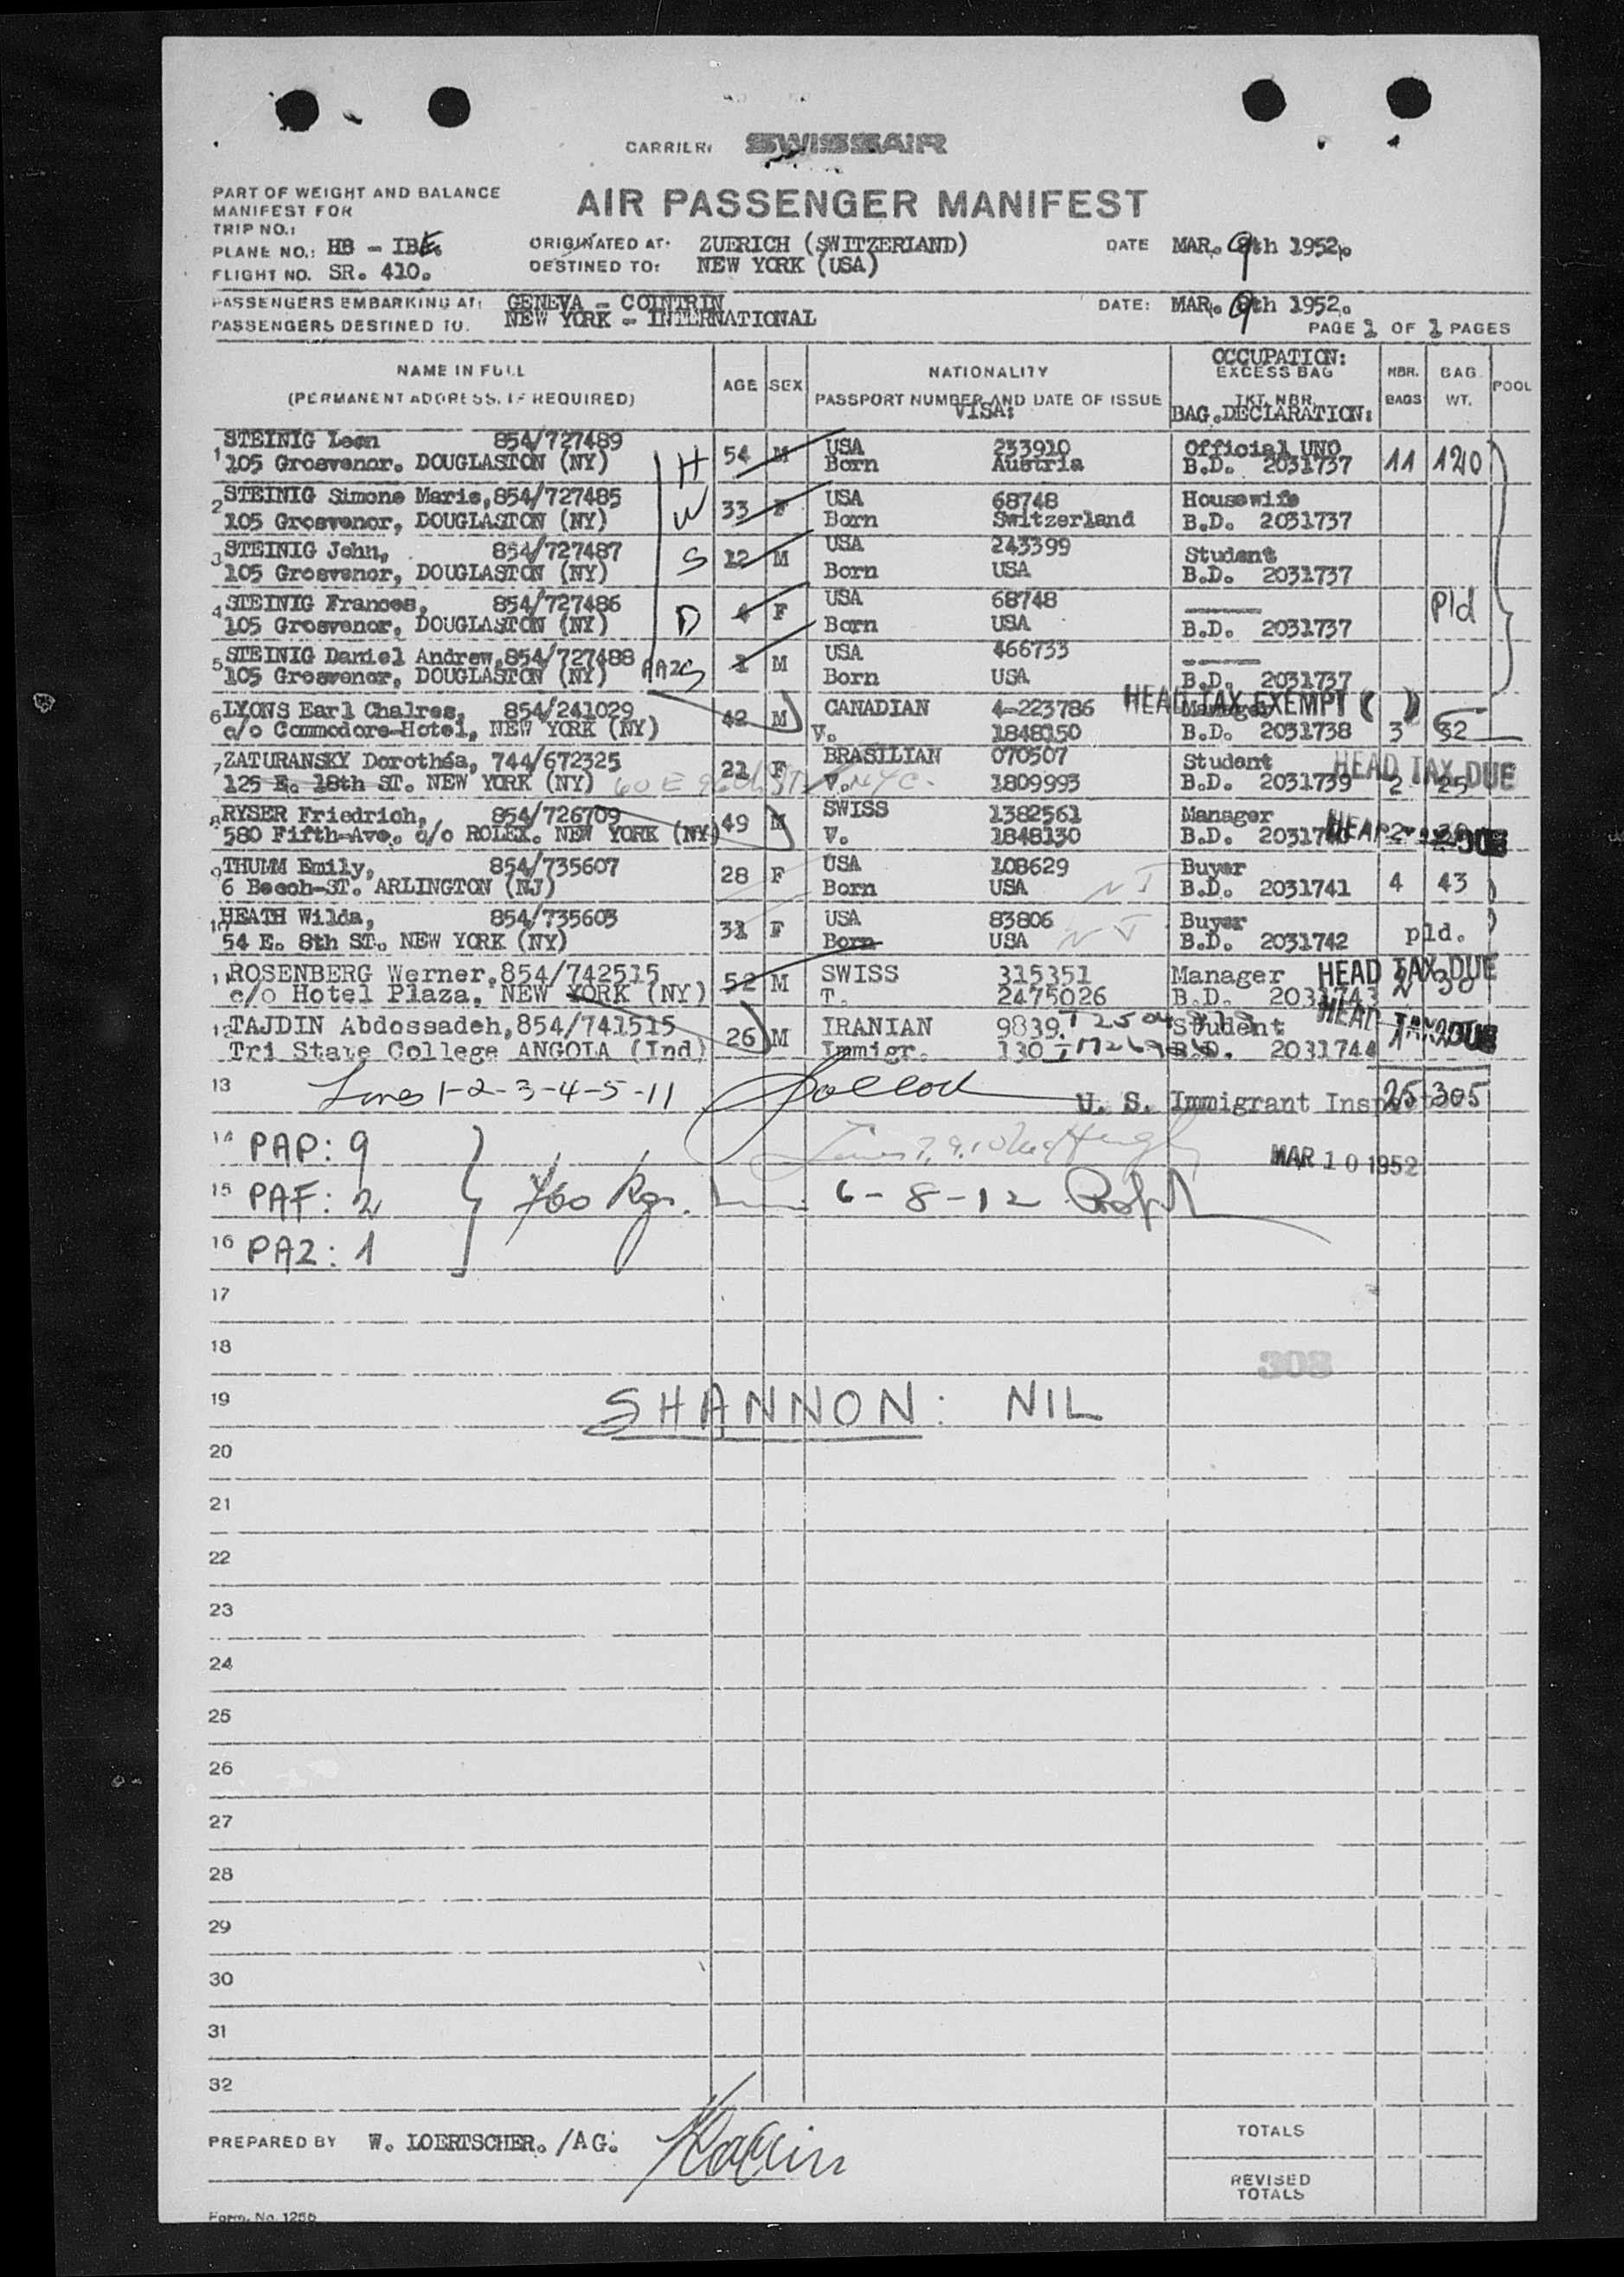 CARRIER: SWISSAIR
PART OF WEIGHT AND BALANCE
MANIFEST FOR
TRIP NO.:
AIR PASSENGER MANIFEST
PLANE NO.: HB - IBE.
ORIGINATED AT: ZUERICH (SWITZERLAND)
DATE MAR. 9th 1952.
FLIGHT NO. SR. 410.
DESTINED TO: NEW YORK (USA)
PASSENGERS EMBARKING AT: GENEVA - COINTRIN
DATE: MAR. 9th 1952.
PASSENGERS DESTINED TO. NEW YORK - INTERNATIONAL
PAGE 1 OF 1 PAGES
NAME IN FULL
(PERMANENT ADDRESS, IF REQUIRED)
AGE SEX
NATIONALITY
PASSPORT NUMBER AND DATE OF ISSUE
VISA:
OCCUPATION:
EXCESS BAG
TKT. NBR.
BAG.DECLARATION:
NBR. BAGS
BAG WT.
POOL
1 STEINIG Leon 854/727489 H 54 M USA 233910 Official UNO 11 120
105 Grosvenor. DOUGLASTON (NY) Born Austria B.D. 2031737
2 STEINIG Simone Marie,854/727485 W 33 F USA 68748 Housewife
105 Grosvenor, DOUGLASTON (NY) Born Switzerland B.D. 2031737
3 STEINIG John, 854/727487 S 12 M USA 243399 Student
105 Grosvenor, DOUGLASTON (NY) Born USA B.D. 2031737
4 STEINIG Frances, 854/727486 D 4 F USA 68748 pld
105 Grosvenor, DOUGLASTON (NY) Born USA B.D. 2031737
5 STEINIG Daniel Andrew,854/727488 S 1 M USA 466733
105 Grosvenor, DOUGLASTON (NY) Born USA B.D. 2031737
6 LYONS Earl Chalres, 854/241029 42 M CANADIAN 4-223786 Manager HEAD TAX EXEMPT ( )
c/o Commodore-Hotel, NEW YORK (NY) V. 1848150 B.D. 2031738 3 32
7 ZATURANSKY Dorothéa, 744/672325 21 F BRASILIAN 070507 Student HEAD TAX DUE
125 E. 18th ST. NEW YORK (NY) V. 1809993 B.D. 2031739 2 25
8 RYSER Friedrich, 854/726709 49 M SWISS 1382561 Manager
580 Fifth-Ave. c/o ROLEX. NEW YORK (NY) V. 1848130 B.D.
9 THUMM Emily, 854/735607 28 F USA 108629 Buyer 4 43
6 Beech-ST. ARLINGTON (NJ) Born USA B.D. 2031741
10 HEATH Wilda, 854/735603 31 F USA 83806 Buyer
54 E. 8th ST. NEW YORK (NY) Born USA B.D. 2031742 pld.
11 ROSENBERG Werner,854/742515 52 M SWISS 315351 Manager HEAD TAX DUE
c/o Hotel Plaza, NEW YORK (NY) T. 2475026 B.D. 2031743
12 TAJDIN Abdossadeh,854/741515 26 M IRANIAN 9839. Student HEAD TAX DUE
Tri State College ANGOLA (Ind) Immigr. 130 B.D. 2031744
13 Lines 1-2-3-4-5-11 U. S. Immigrant Inspector 25 305
14 PAP: 9
MAR 10 1952
15 PAF: 2 6-8-12
16 PAZ: 1
17
18
308
19 SHANNON: NIL
20
21
22
23
24
25
26
27
28
29
30
31
32
PREPARED BY W. LOERTSCHER. /AG.
TOTALS
REVISED
TOTALS
Form. No. 1256